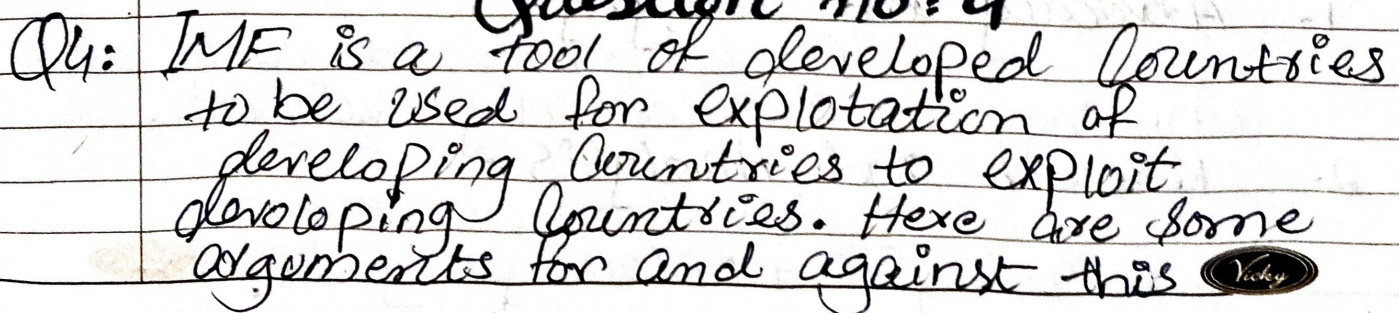 Question no: 4
Q4: IMF is a tool of developed Countries
to be used for explotation of
developing Countries to exploit
devoloping Countries. Here are some
arguments for and against this
Vicky